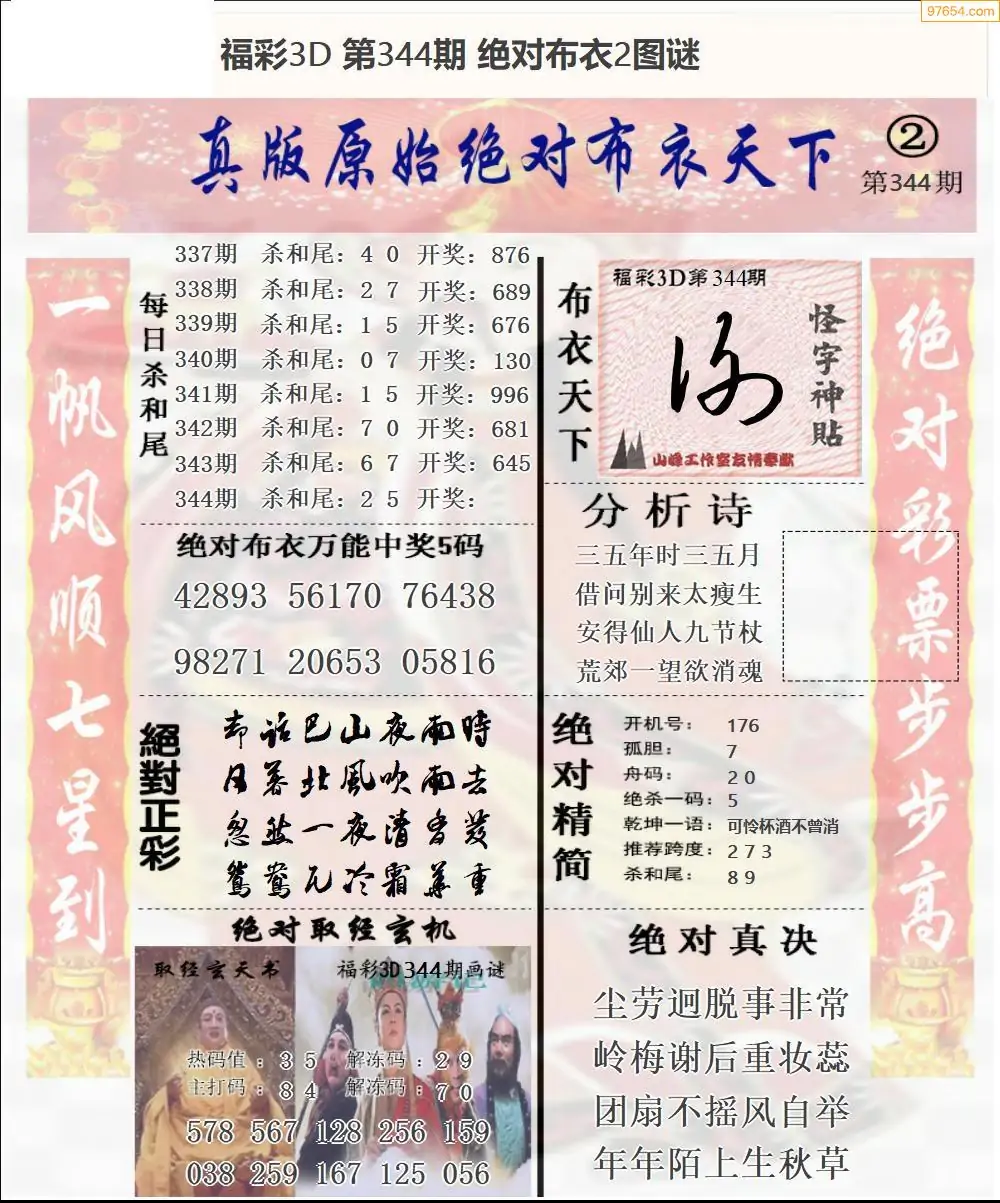 97654.com
福彩3D 第344期 绝对布衣2图谜
真版原始绝对布衣天下
②
第344期
一帆风顺七星到
每日杀和尾
337期 杀和尾：4 0 开奖：876
338期 杀和尾：2 7 开奖：689
339期 杀和尾：1 5 开奖：676
340期 杀和尾：0 7 开奖：130
341期 杀和尾：1 5 开奖：996
342期 杀和尾：7 0 开奖：681
343期 杀和尾：6 7 开奖：645
344期 杀和尾：2 5 开奖：
绝对布衣万能中奖5码
42893 56170 76438
98271 20653 05816
絕對正彩
却话巴山夜雨時
日暮北風吹雨去
忽然一夜清香发
鴛鴦瓦冷霜華重
绝对取经玄机
取经玄天书
福彩3D344期画谜
热码值：3 5 解冻码：2 9
主打码：8 4 解冻码：7 0
578 567 128 256 159
038 259 167 125 056
布衣天下
福彩3D第344期
怪字神貼
山峰工作室友情奉献
分析诗
三五年时三五月
借问别来太瘦生
安得仙人九节杖
荒郊一望欲消魂
绝对精简
开机号：176
孤胆：7
舟码：2 0
绝杀一码：5
乾坤一语：可怜杯酒不曾消
推荐跨度：2 7 3
杀和尾：8 9
绝对真决
尘劳迥脱事非常
岭梅谢后重妆蕊
团扇不摇风自举
年年陌上生秋草
绝对彩票步步高